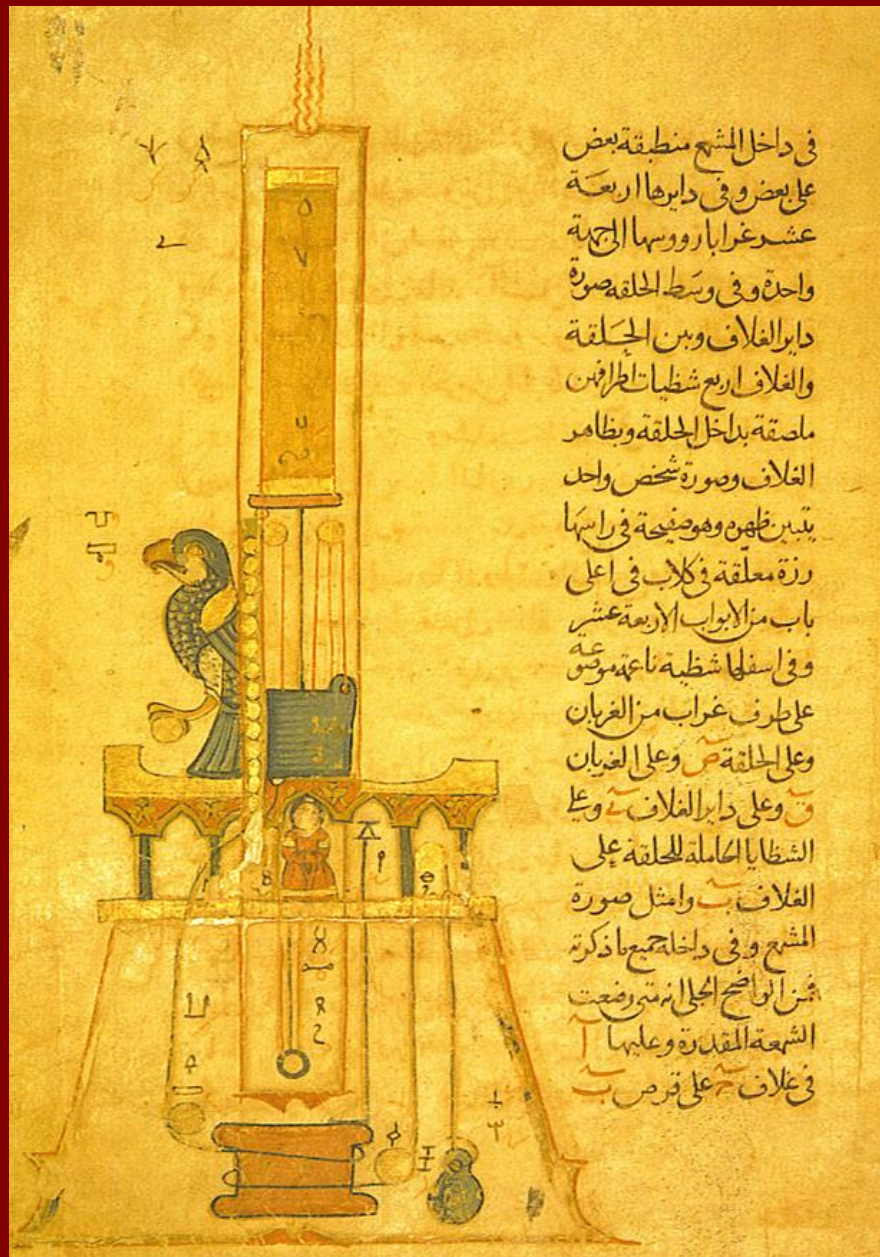 في داخل المشمع منطبقة بعض
على بعض وفي دايرها اربعة
عشر غرابا رووسها الى جهة
واحدة وفي وسط الحلقة صورة
داير الغلاف وبين الحلقة
والغلاف اربع شظيات اطرافهن
ملصقة بداخل الحلقة وبظاهر
الغلاف وصورة شخص واحد
يتبين ظهره وهو صفيحة في راسها
رزة معلقة في كلاب في اعلى
باب من الابواب الاربعة عشر
وفي اسفلها شظية ناعمة موضوعة
على طرف غراب من الغربان
وعلى الحلقة ص وعلى الغربان
ق وعلى داير الغلاف وعلى
الشظايا الحاملة للحلقة على
الغلاف ب وامثل صورة
المشمع وفي داخله جميع ما ذكرته
فمن الواضح الجلي انه متى وضعت
الشمعة المقدرة وعليها آ
في غلاف على قرص ب